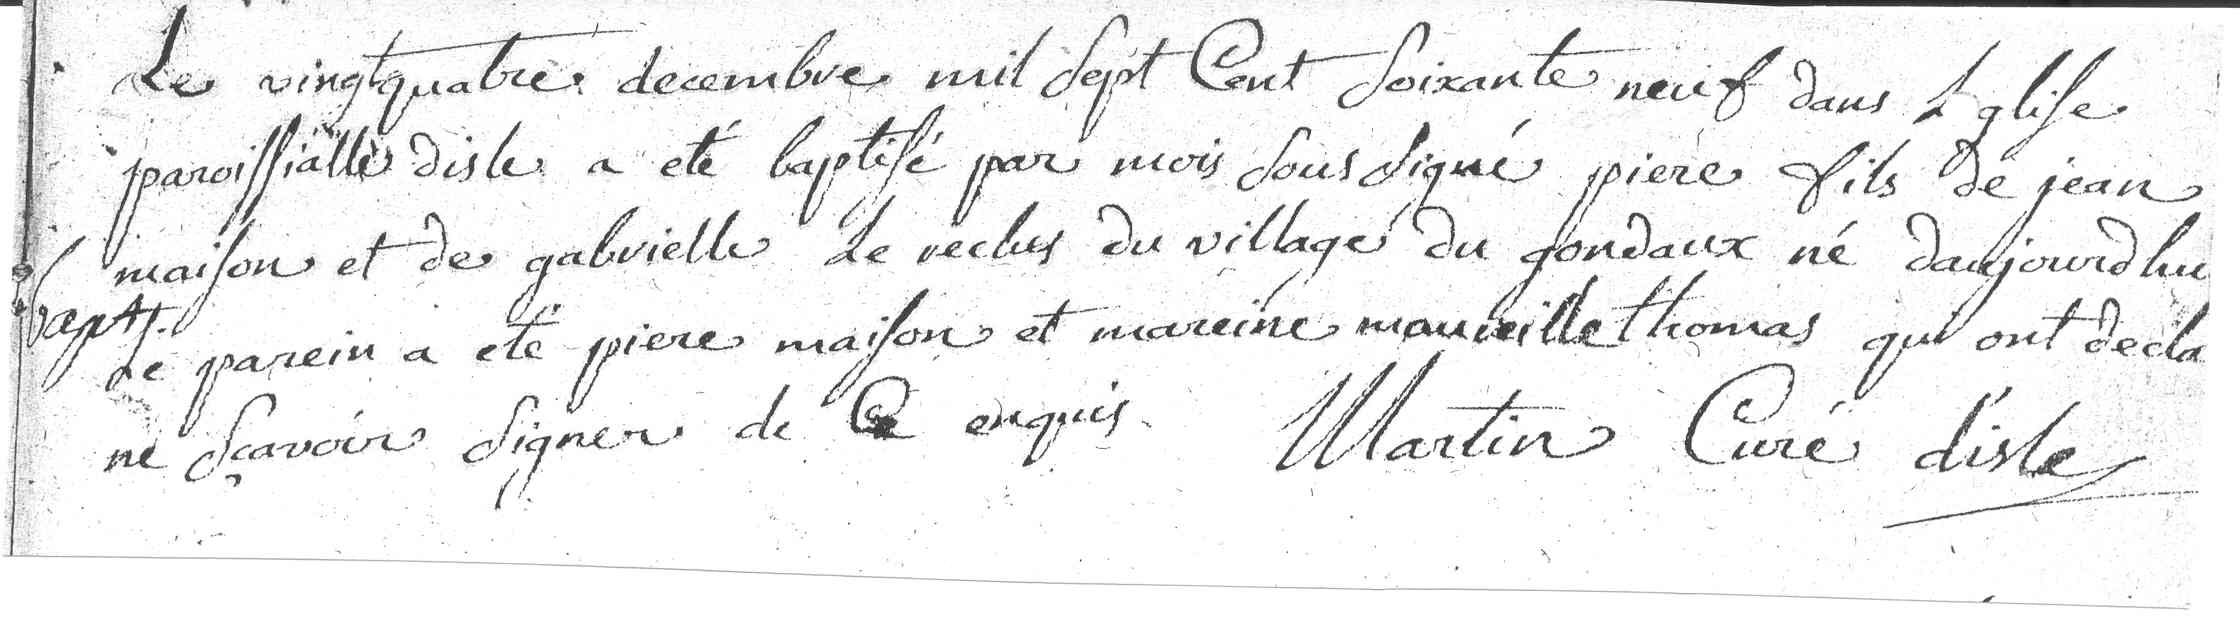 Le vingtquatre decembre mil sept Cent soixante neuf dans L'glise
paroissialle disle a eté baptisé par mois sous signé piere fils de jean
maison et de gabrielle de reclus du village du gondaux né daujourdhu
bapt.
le parein a eté piere maison et mareine thomas qui ont decla
ne sçavoir signer de Ce enquis Martin Curé disle